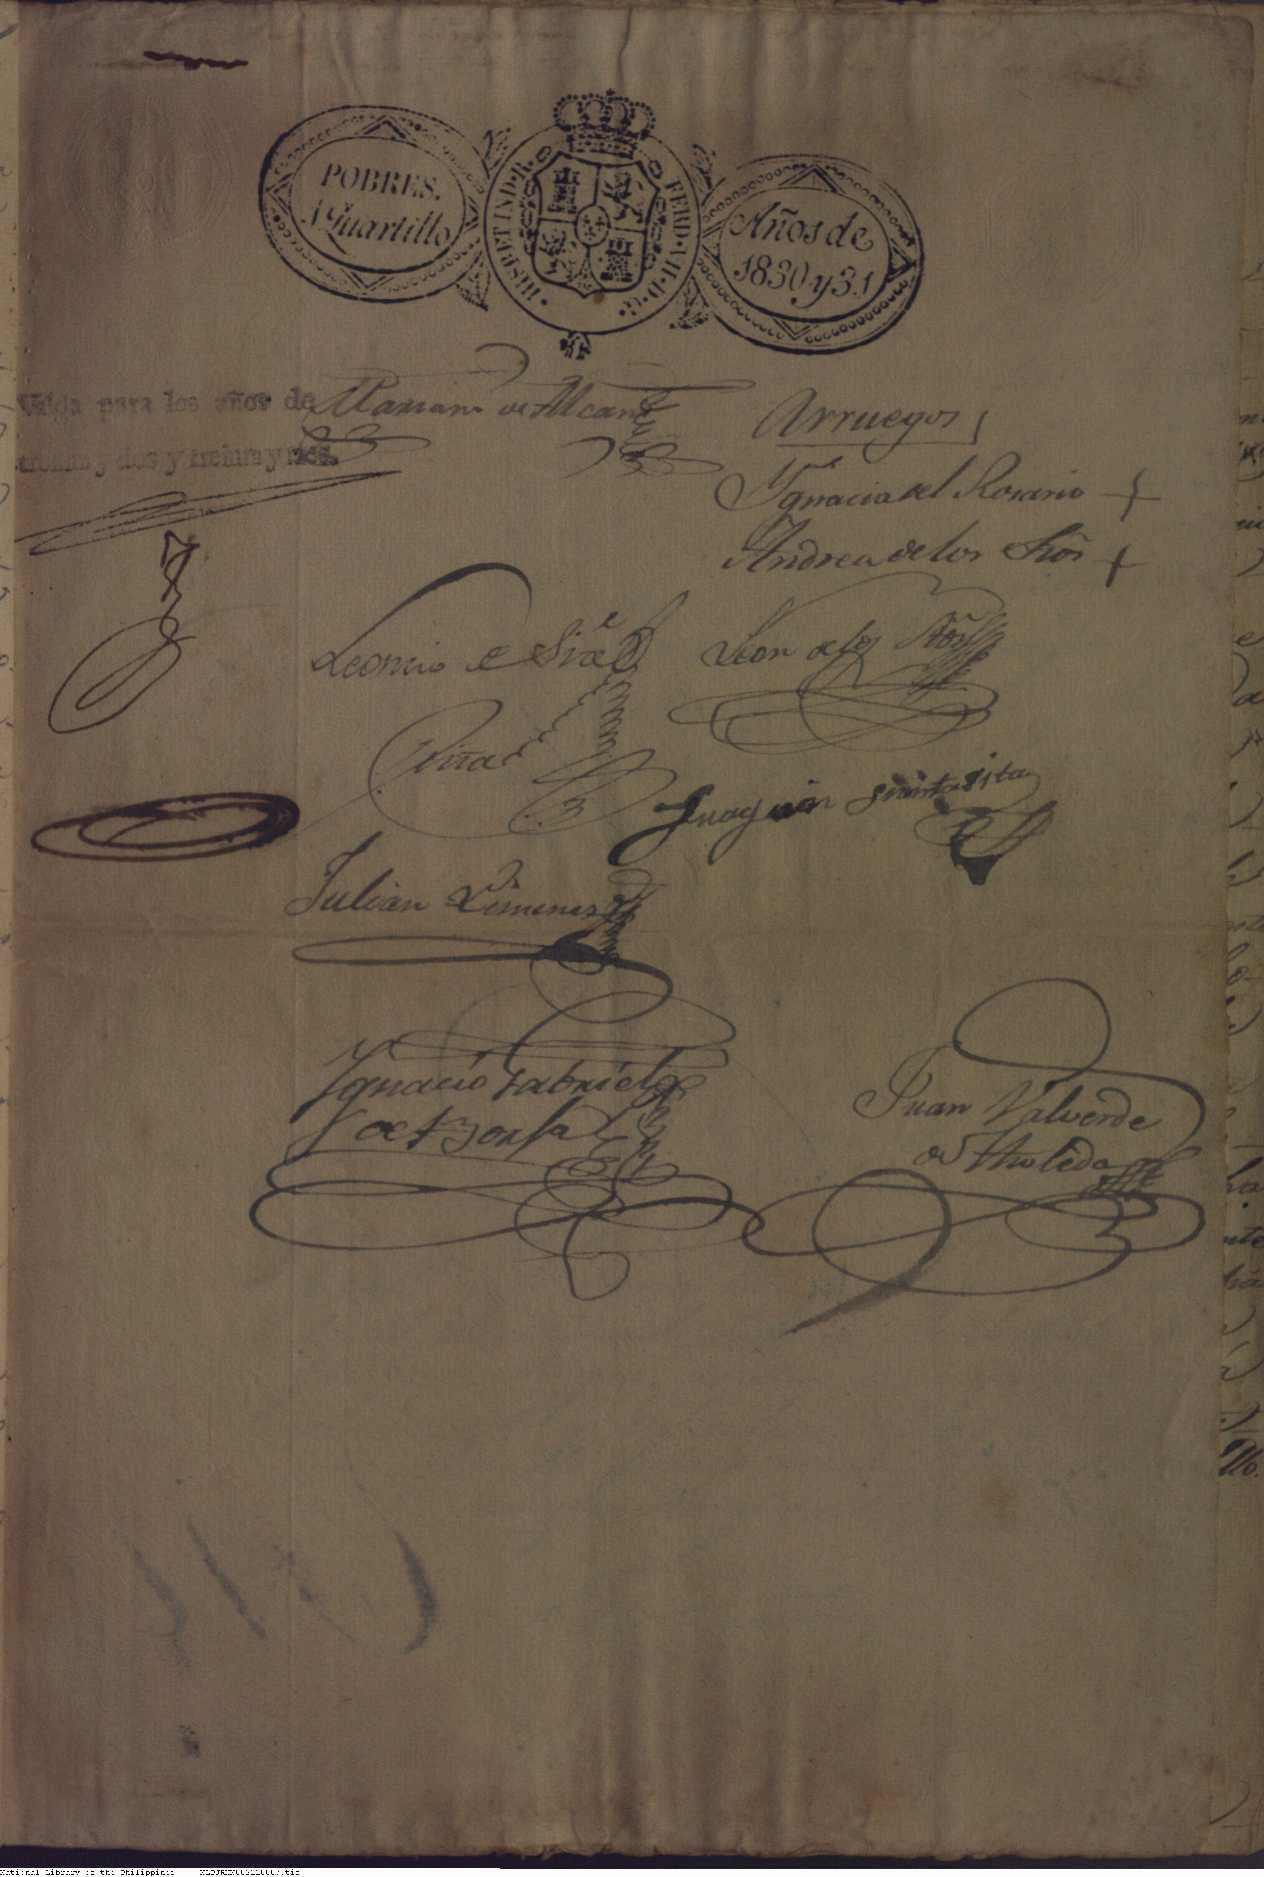 POBRES.
Quartillo
HISP.ET IND.R.
FERD.VII.D.G.
Años de
1830 y 31
Valga para los años de
treinta y dos y treinta y tres.
Mariano de Alcant
Arruegos
Ygnacia del Rosario +
Andrea de los Stos +
Leoncio de
Leon de los Stos
Piña
Juaquin
Julian Limenes
Ygnacio Gabriel
de Borja
Juan Valverde
de Tholedo
National Library of the Philippines